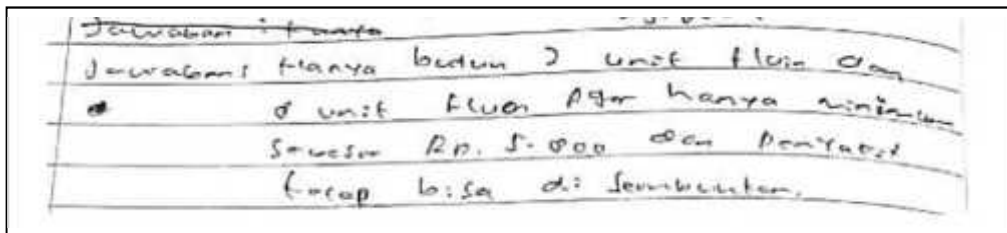 Jawaban : Hanya
Jawaban : Hanya butuh 2 unit fluin dan
0 unit fluon Agar hanya minimum
sebesar Rp. 5.000 dan Penyakit
tetap bisa di sembuhkan.